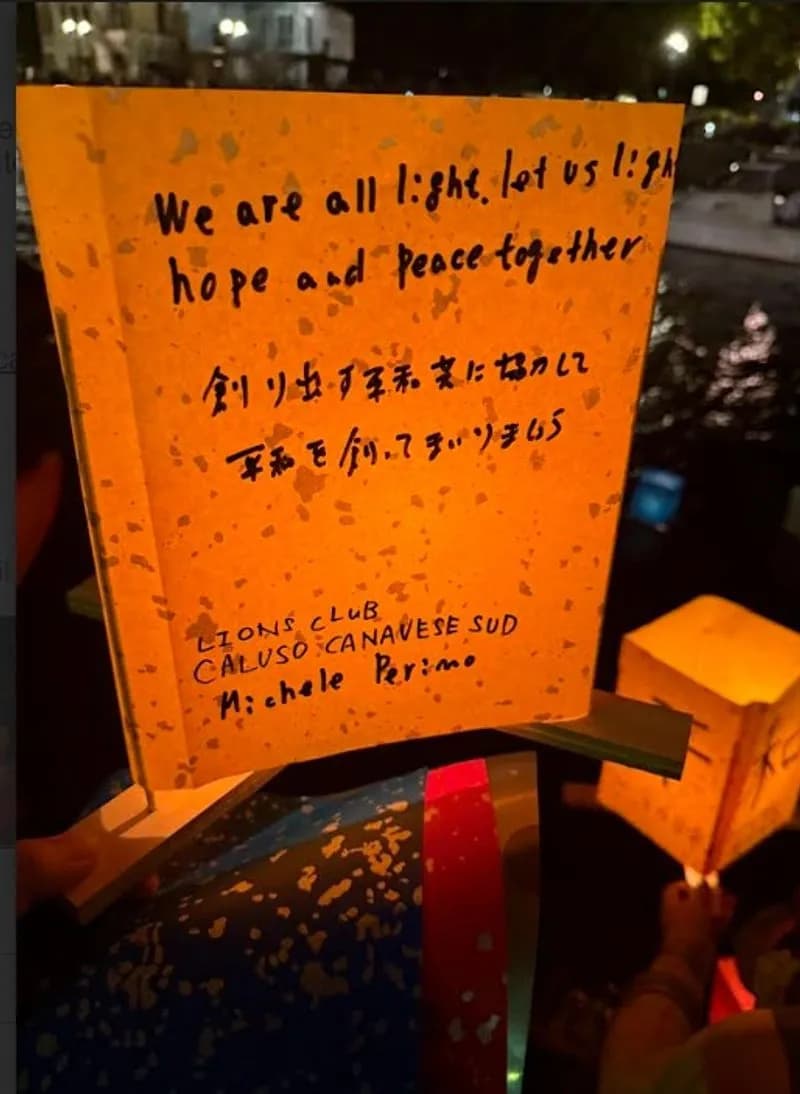 We are all light. let us ligh
hope and peace together
創り出す平和 共に協力して
平和を創ってまいりましょう
LIONS CLUB
CALUSO CANAVESE SUD
Michele Perino